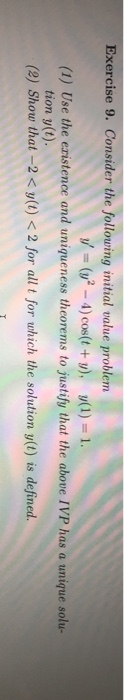 Exercise 9. Consider the following initial value problem
y' = (y² − 4) cos(t + y), y(1) = 1.
(1) Use the existence and uniqueness theorems to justify that the above IVP has a unique solu-
tion y(t).
(2) Show that −2 < y(t) < 2 for all t for which the solution y(t) is defined.